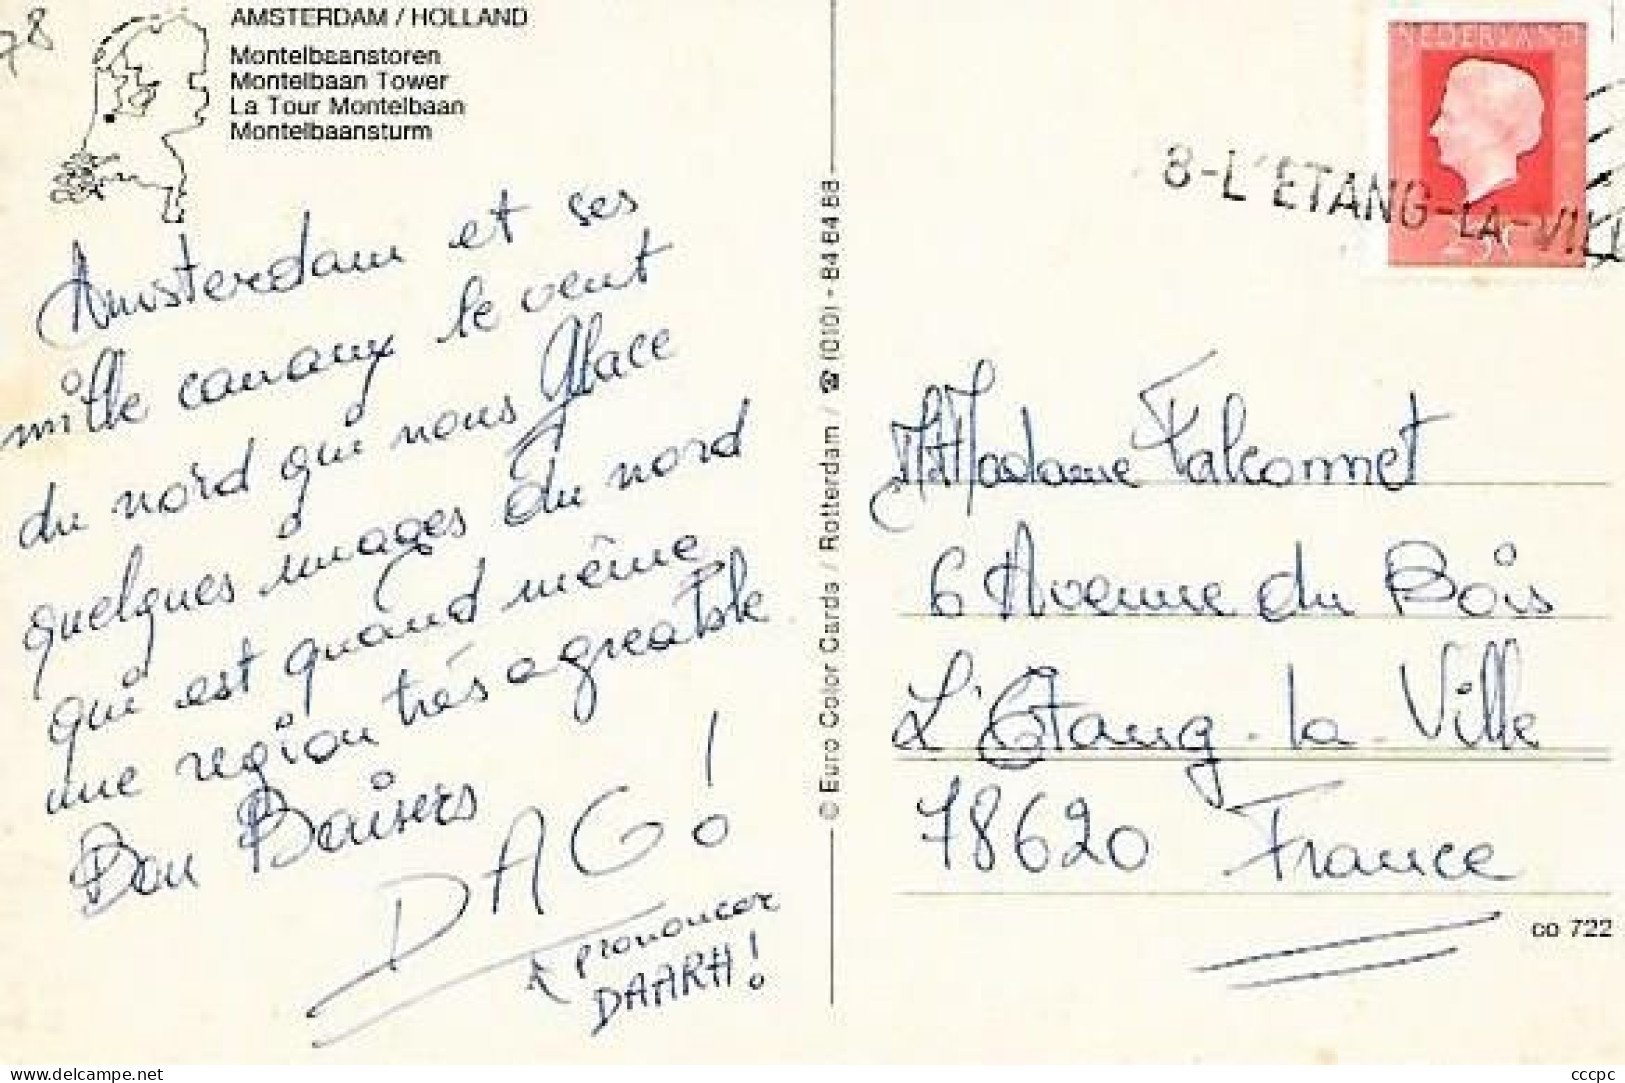 78
AMSTERDAM / HOLLAND
Montelbaanstoren
Montelbaan Tower
La Tour Montelbaan
Montelbaansturm
Amsterdam et ses
mille canaux le vent
du nord qui nous glace
quelques images du nord
qui est quand même
une region très agreable
Bon Baisers
DAG !
prononcer
DAARH !
© Euro Color Cards / Rotterdam / ☎ (010) - 84 84 88
NEDERLAND
8-L'ETANG-LA-VILL
Madame Falconnet
6 Avenue du Bois
L'Etang-la-Ville
78620 France
co 722
cccpc
delcampe.net